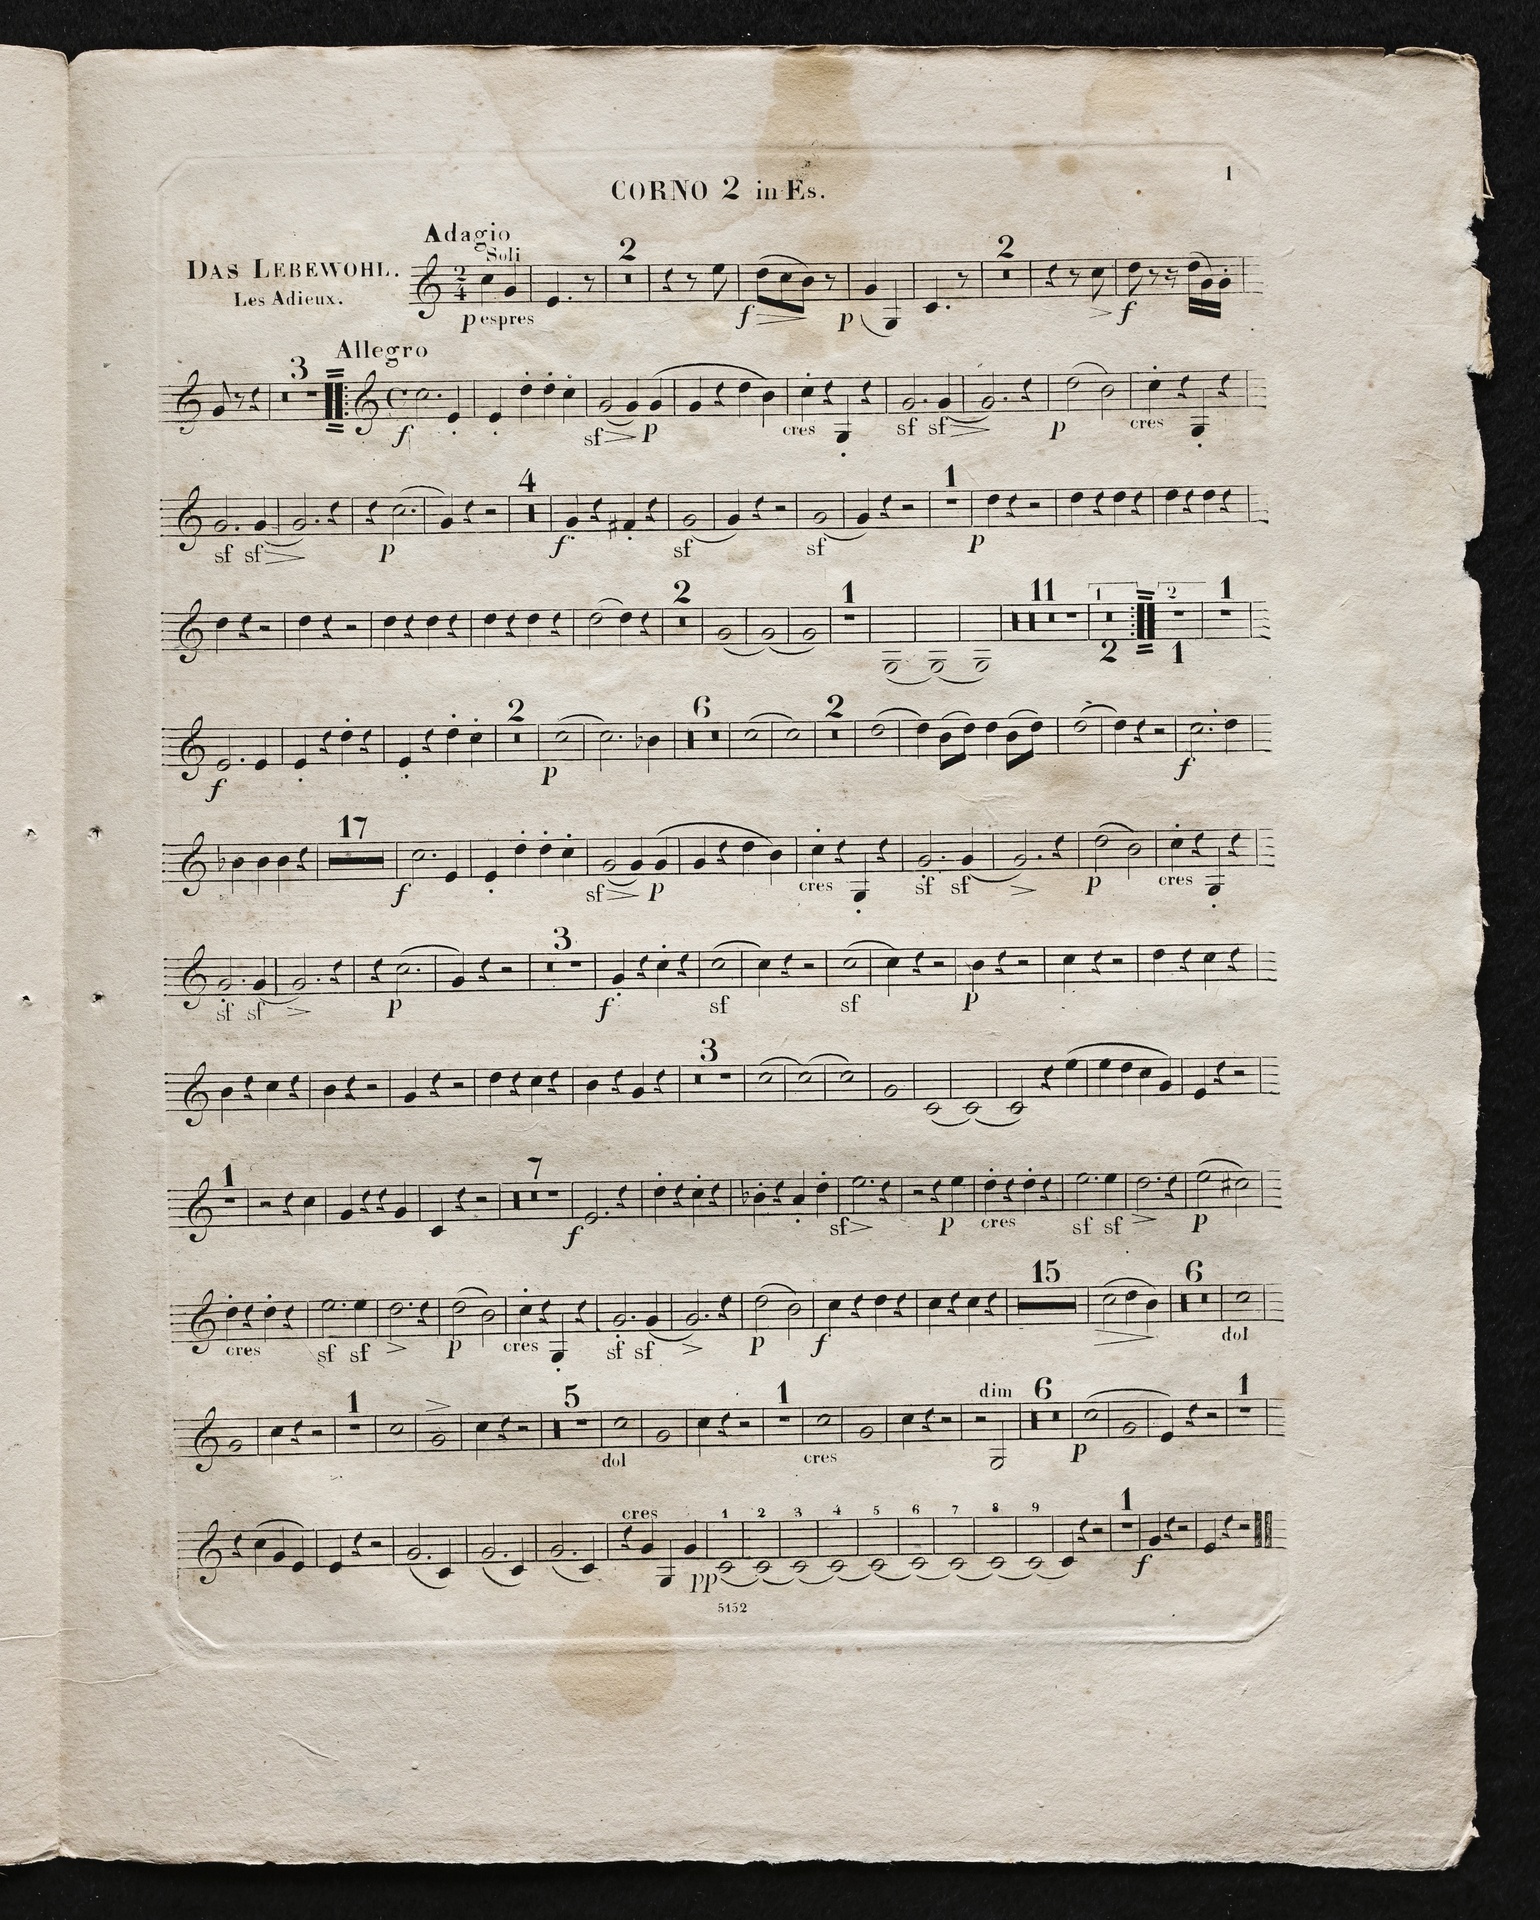 1
CORNO 2 in Es.
Adagio
DAS LEBEWOHL.
Les Adieux.
Soli
2 2
2
4
p espres f p f
Allegro
3
f sf p cres sf sf p cres
4 1
sf sf p f sf sf p
2 1 11 1 2 1
2 1
2 6 2
f p f
17
f sf p cres sf sf p cres
3
sf sf p f sf sf p
3
1 7
f sf p cres sf sf p
15 6
cres sf sf p cres sf sf p f dol
1 5 1 dim 6 1
dol cres p
cres 1 2 3 4 5 6 7 8 9 1
pp f
5152